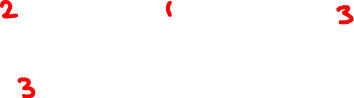 2 1 3
3